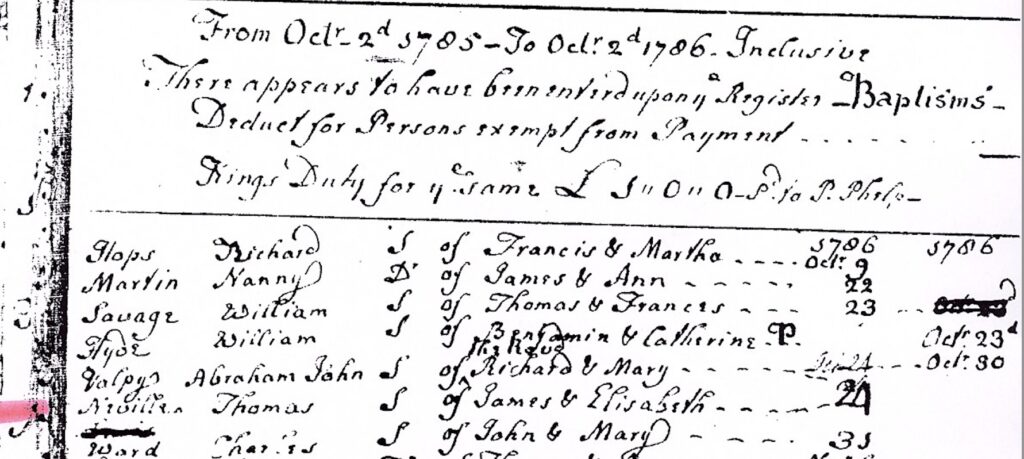 From Octr. 2d 1785 - To Octr. 2d 1786. Inclusive
There appears to have been enterd upon ye Register - Baptisms -
Deduct for Persons exempt from Payment - - - -
Kings Duty for ye same £ 1 " 0 " 0 - pd. to P. Phelp -
1786 1786
Richard S of Francis & Martha - - - - Octr. 9
Martin Nanny D of James & Ann - - - - 22
Savage William S of Thomas & Frances - - 23
Hyde William S of Benjamin & Catherine - P. Octr. 23d
the Revd
Valpy Abraham John S of Richard & Mary - - - Octr. 30
Neville Thomas S of James & Elisabeth - - - 24
Ward Charles S of John & Mary - - - - 31